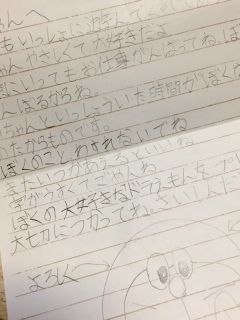 んへ
もいっしょに遊んでくれて
ゃんやさしくて大好きだよ
にいってもお仕事がんばってね。ぼ
んばるからね。
ちゃんといっしょにいた時間がぼく
のたからものです。
ぼくのことわすれないでね
またいつかあえるといいね
字がうすくてごめんね
ぼくの大好きなドラえもんを、プ
大切につかってね。さいしんだ
よろしく